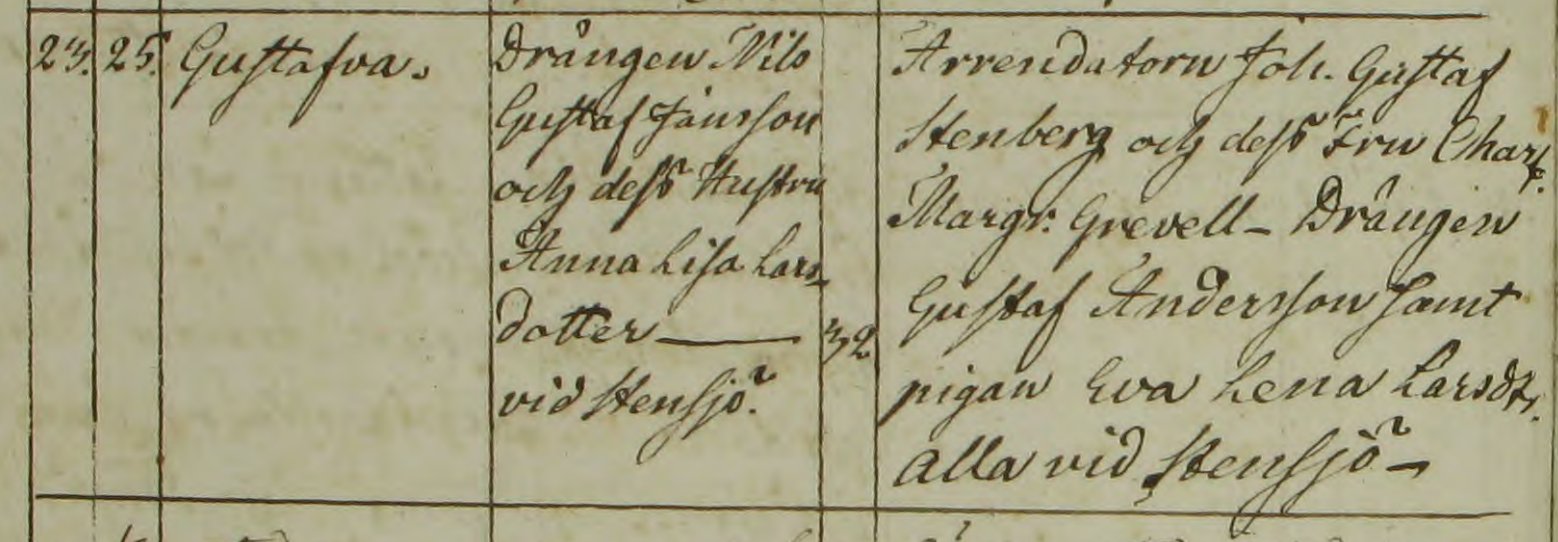 23. 25. Gustafva.
Drängen Nils
Gustaf Jansson
och dess Hustru
Anna Lisa Lars-
dotter —— 32
vid Stensjö.
Arrendatorn Joh. Gustaf
Stenberg och dess Fru Charl.
Margr. Grevell – Drängen
Gustaf Andersson samt
pigan Eva Lena Larsdtr.
alla vid Stensjö –